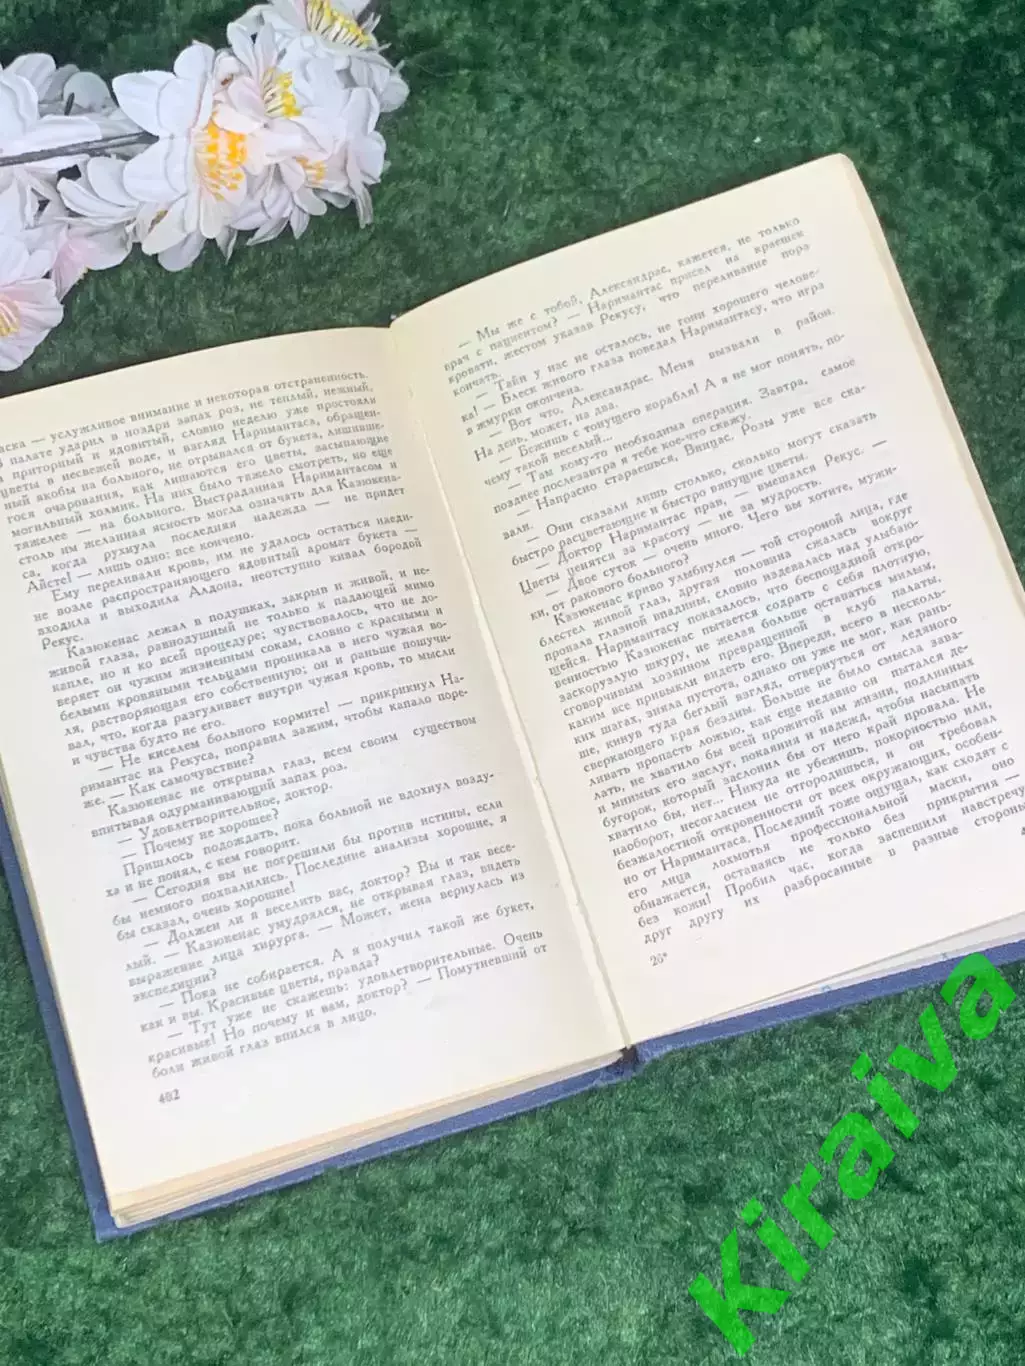 ласка — услужливое внимание и некоторая отстраненность.
В палате ударил в ноздри запах роз, не теплый, нежный,
а приторный и ядовитый, словно неделю уже простояли
цветы в несвежей воде, и взгляд Наримантаса, обращен-
ный якобы на больного, не отрывался от букета, лишивше-
гося очарования, как лишаются его цветы, засыпающие
могильный холмик. На них было тяжело смотреть, но еще
тяжелее — на больного. Выстраданная Наримантасом и
столь им желанная ясность могла означать для Казюкена-
са, когда рухнула последняя надежда — не придет
Айсте! — лишь одно: все кончено.
Ему переливали кровь, им не удалось остаться наеди-
не возле распространяющего ядовитый аромат букета —
входила и выходила Алдона, неотступно кивал бородой
Рекус.
Казюкенас лежал в подушках, закрыв и живой, и не-
живой глаза, равнодушный не только к падающей мимо
капле, но и ко всей процедуре; чувствовалось, что не до-
веряет он чужим жизненным сокам, словно с красными и
белыми кровяными тельцами проникала в него чужая во-
ля, растворяющая его собственную; он и раньше пошучи-
вал, что, когда разгуливает внутри чужая кровь, то мысли
и чувства будто не его.
— Не киселем больного кормите! — прикрикнул На-
римантас на Рекуса, поправил зажим, чтобы капало поре-
же. — Как самочувствие?
Казюкенас не открывал глаз, всем своим существом
впитывая одурманивающий запах роз.
— Удовлетворительное, доктор.
— Почему не хорошее?
Пришлось подождать, пока больной не вдохнул возду-
ха и не понял, с кем говорит.
— Сегодня вы не погрешили бы против истины, если
бы немного похвалились. Последние анализы хорошие, я
бы сказал, очень хорошие!
— Должен ли я веселить вас, доктор? Вы и так весе-
лый. — Казюкенас умудрялся, не открывая глаз, видеть
выражение лица хирурга. — Может, жена вернулась из
экспедиции?
— Пока не собирается. А я получил такой же букет,
как и вы. Красивые цветы, правда?
— Тут уже не скажешь: удовлетворительные. Очень
красивые! Но почему и вам, доктор? — Помутневший от
боли живой глаз впился в лицо.
402
— Мы же с тобой, Александрас, кажется, не только
врач с пациентом? — Наримантас присел на краешек
кровати, жестом указав Рекусу, что переливание пора
кончать.
— Тайн у нас не осталось, не гони хорошего челове-
ка! — Блеск живого глаза поведал Наримантасу, что игра
в жмурки окончена.
— Вот что, Александрас. Меня вызвали в район.
На день, может, на два.
— Бежишь с тонущего корабля! А я не мог понять, по-
чему такой веселый...
— Там кому-то необходима операция. Завтра, самое
позднее послезавтра я тебе кое-что скажу.
— Напрасно стараешься, Винцас. Розы уже все ска-
зали.
— Они сказали лишь столько, сколько могут сказать
быстро расцветающие и быстро вянущие цветы.
— Доктор Наримантас прав, — вмешался Рекус. —
Цветы ценятся за красоту — не за мудрость.
— Двое суток — очень много. Чего вы хотите, мужи-
ки, от ракового больного?
Казюкенас криво улыбнулся — той стороной лица, где
блестел живой глаз, другая половина сжалась вокруг
провала глазной впадины, словно издевалась над улыбаю-
щейся. Наримантасу показалось, что беспощадной откро-
венностью Казюкенас пытается содрать с себя плотную,
заскорузлую шкуру, не желая больше оставаться милым,
сговорчивым хозяином превращенной в клуб палаты,
каким все привыкли видеть его. Впереди, всего в несколь-
ких шагах, зияла пустота, однако он уже не мог, как рань-
ше, кинув туда беглый взгляд, отвернуться от ледяного
сверкающего края бездны. Больше не было смысла зава-
ливать пропасть ложью, как еще недавно он пытался де-
лать, не хватило бы всей прожитой им жизни, подлинных
и мнимых его заслуг, покаяния и надежд, чтобы насыпать
бугорок, который заслонил бы от него край провала. Не
хватило бы, нет... Никуда не убежишь, покорностью или,
наоборот, несогласием не отгородишься, и он требовал
безжалостной откровенности от всех окружающих, особен-
но от Наримантаса. Последний тоже ощущал, как сходят с
его лица лохмотья профессиональной маски, оно
обнажается, оставаясь не только без прикрытия —
без кожи! Пробил час, когда заспешили навстречу
друг другу их разбросанные в разные стороны
26*
Kiraiva